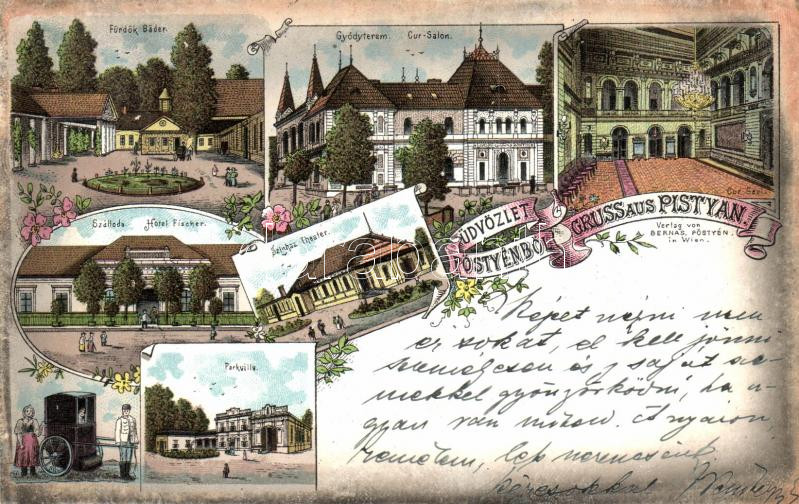 Fürdők Bäder.
Gyógyterem. Cur-Salon.
Cur-Saal.
Szálloda. Hôtel Fischer.
Színház. Theater.
ÜDVÖZLET PÖSTYÉNBŐL
GRUSS AUS PISTYAN.
Verlag von
BERNAS, PÖSTYÉN.
in Wien.
Parkvilla.
Képet nézni nem
ér sokat, el kell jönni
személyesen és saját sze-
mekkel gyönyörködni, ha
van miben. A nyáron
remélem, lesz szerencsénk